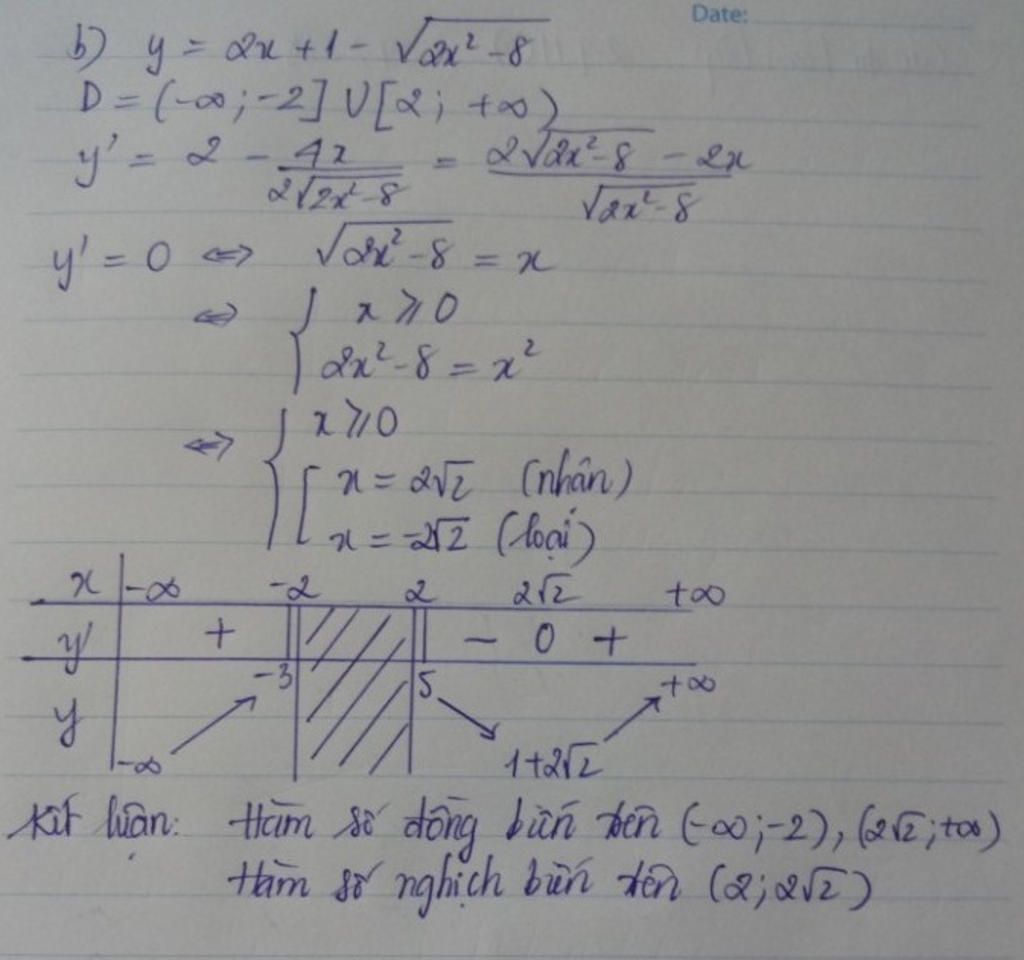 Date:
b) y = 2x + 1 - √(2x² - 8)
D = (-∞; -2] ∪ [2; +∞)
y' = 2 - 4x / 2√(2x² - 8) = (2√(2x² - 8) - 2x) / √(2x² - 8)
y' = 0 ⇔ √(2x² - 8) = x
⇔ { x ⩾ 0
2x² - 8 = x²
⇔ { x ⩾ 0
[ x = 2√2 (nhân)
x = -2√2 (loại)
x | -∞ -2 2 2√2 +∞
y' + || || - 0 +
-3 5 +∞
y
-∞ 1+2√2
Kết luận: Hàm số đồng biến trên (-∞; -2), (2√2; +∞)
Hàm số nghịch biến trên (2; 2√2)